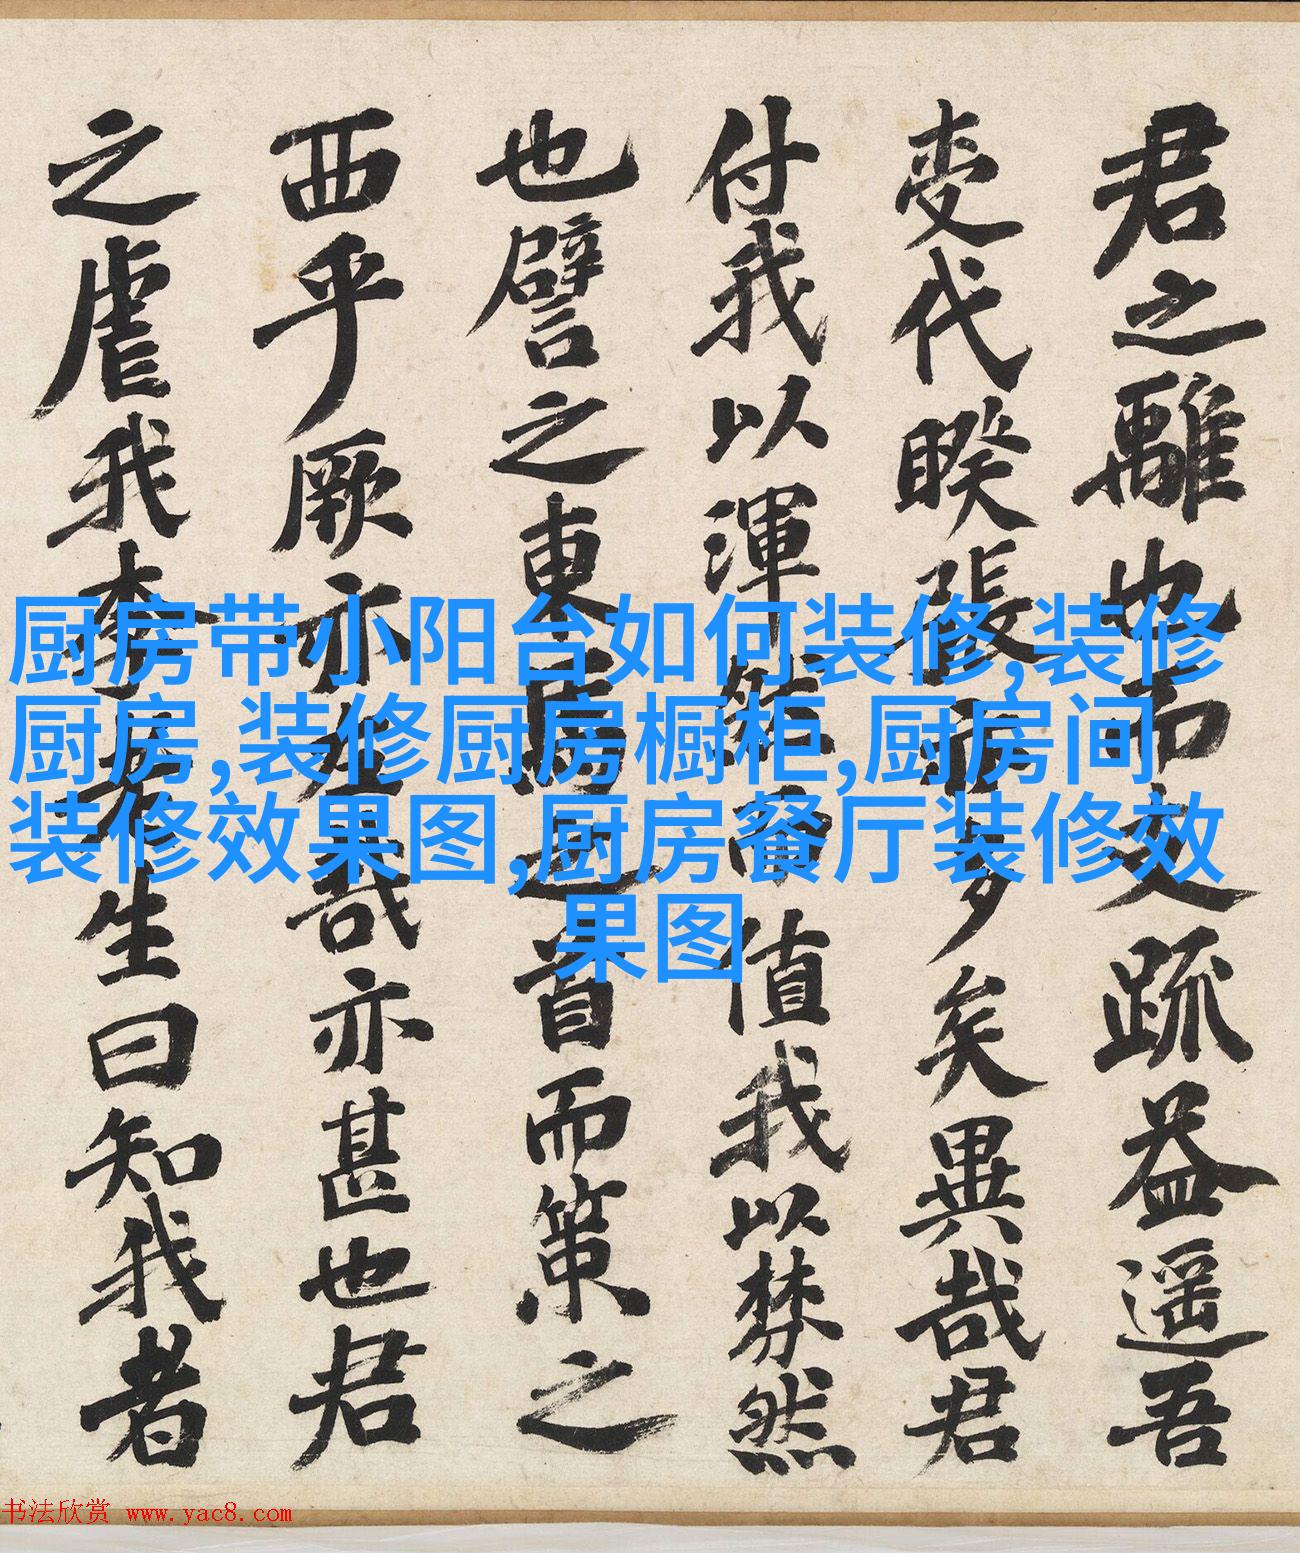 君之離也而文疏益遥吾
代睽張多矣異哉君
付我以渾然而值我以棼然
也譬之東馬首而策之
西乎厥亦哉亦甚也君
之虐我李生曰知我者
厨房带小阳台如何装修,装修
厨房,装修厨房橱柜,厨房间
装修效果图,厨房餐厅装修效
果图
书法欣赏 www.yac8.com